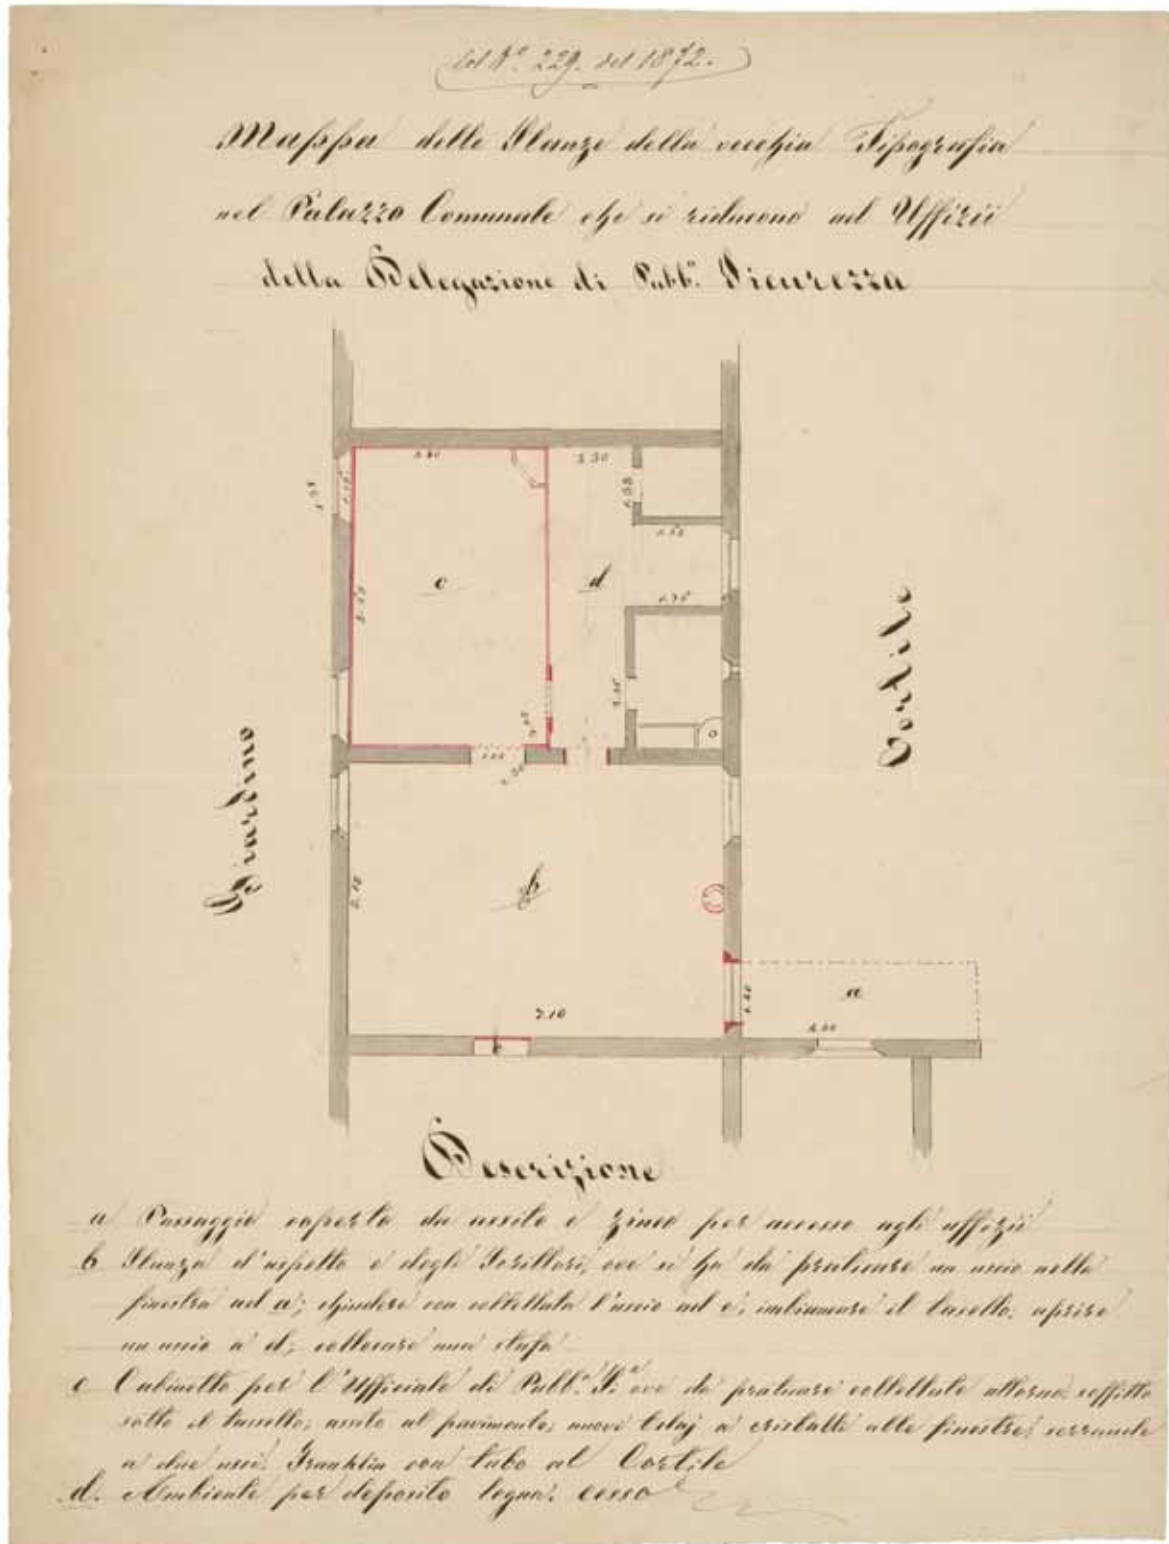 del N.° 229. del 1872.
Mappa delle Stanze della vecchia Tipografia
nel Palazzo Comunale che si riducono ad Uffizii
della Delegazione di Pubb.ª Sicurezza
2.30
c
d
Giardino
Cortile
b
7.10
a
Descrizione
a Passaggio coperto da assito e zinco per accesso agli uffizii
b Stanza d'aspetto e degli Scrittori, ove si ha da praticare un uscio nella
finestra ad a; chiudere con coltellata l'uscio ad e; imbiancare il tasello, aprire
un uscio a d; collocare una stufa
c Gabinetto per l'Uffiziale di Pubb.ª S.ª ove da praticare coltellate attorno, soffitto
sotto il tassello; assito al pavimento; nuovi telaj a cristalli alle finestre; serrande
a due usci. Franklin con tubo al Cortile
d. Ambiente per deposito legna: cesso